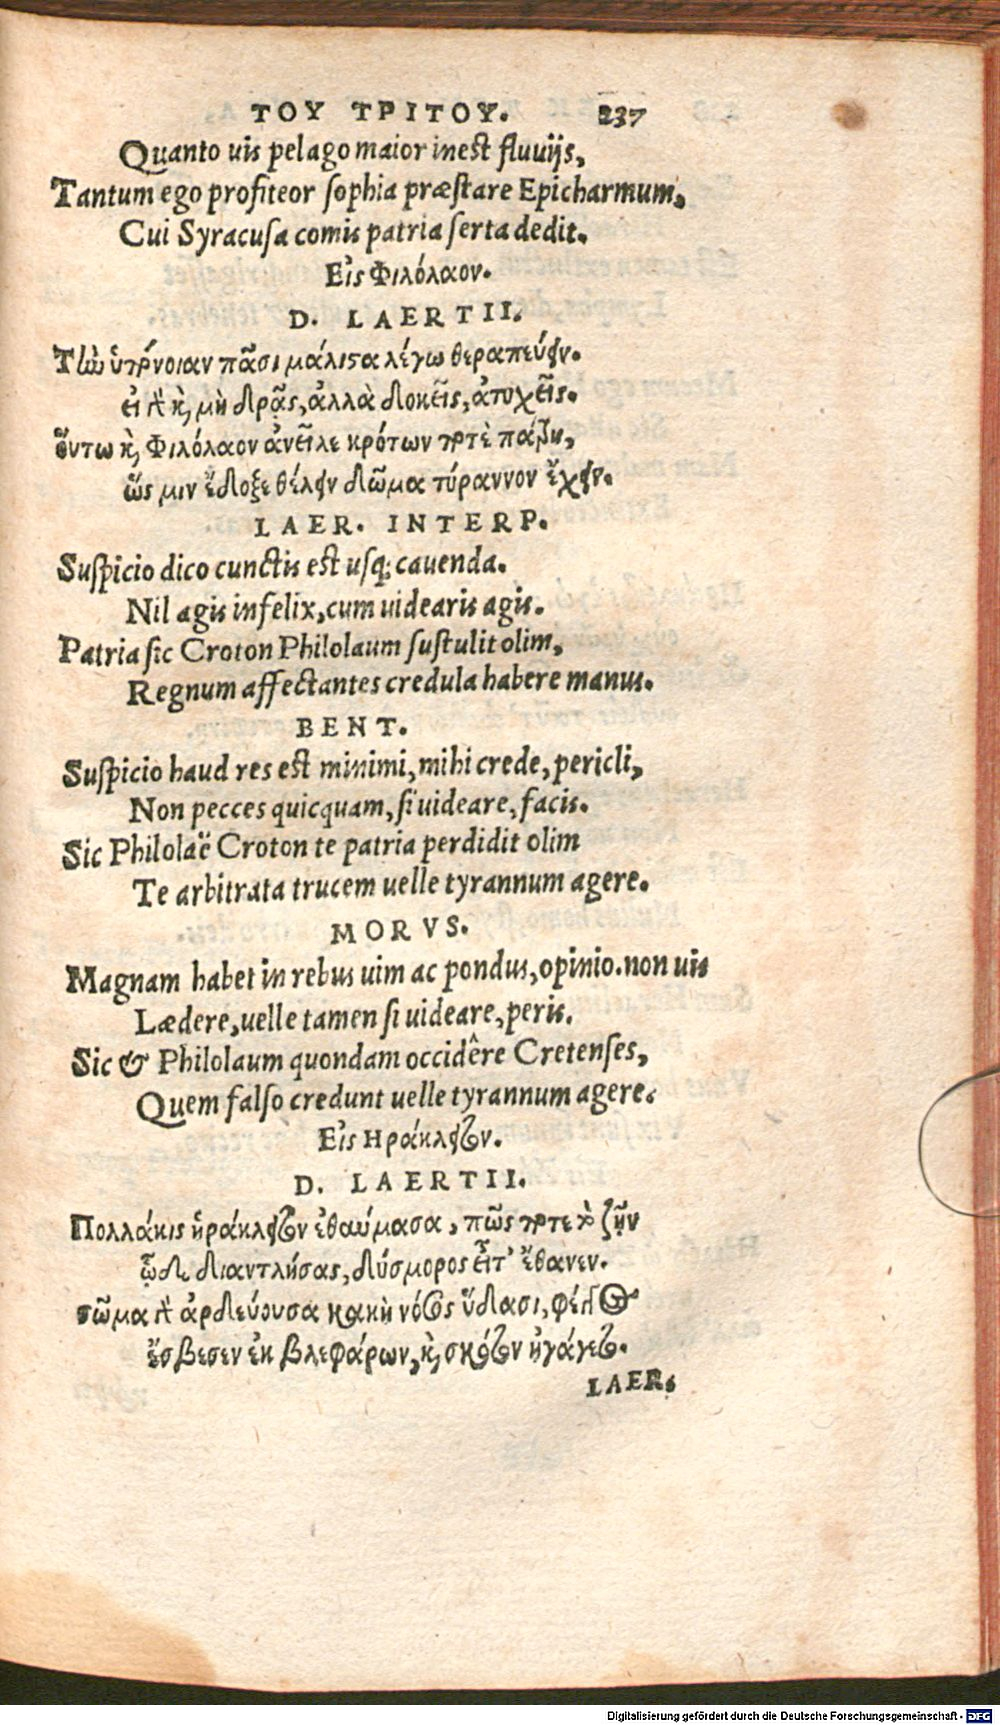 ΤΟΥ ΤΡΙΤΟΥ. 237
Quanto uis pelago maior inest fluuijs,
Tantum ego profiteor sophia præstare Epicharmum,
Cui Syracusa comis patria serta dedit.
Εἰς Φιλόλαον.
D. LAERTII.
Τὼ ὑπόνοιαν πᾶσι μάλιστα λέγω θεραπεύειν.
εἰ δὲ καὶ μὴ δρᾷς, ἀλλὰ δοκεῖς, ἀτυχεῖς.
οὕτω καὶ Φιλόλαον ἀνεῖλε κρότων ποτὲ πάτρη,
ὥς μιν ἔδοξε θέλειν δῶμα τύραννον ἔχειν.
LAER. INTERP.
Suspicio dico cunctis est usq; cauenda.
Nil agis infelix, cum uidearis agis.
Patria sic Croton Philolaum sustulit olim,
Regnum affectantes credula habere manus.
BENT.
Suspicio haud res est minimi, mihi crede, pericli,
Non pecces quicquam, si uideare, facis.
Sic Philolaë Croton te patria perdidit olim
Te arbitrata trucem uelle tyrannum agere.
MORVS.
Magnam habet in rebus uim ac pondus, opinio. non uis
Lædere, uelle tamen si uideare, peris.
Sic & Philolaum quondam occidêre Cretenses,
Quem falso credunt uelle tyrannum agere.
Εἰς Ηράκλειτον.
D. LAERTII.
Πολλάκις ἡράκλειτον ἐθαύμασα, πῶς ποτε τὸ ζῆν
ᾧδε διαντλήσας, δύσμορος εἶτ' ἔθανεν.
σῶμα δὲ ἀρδεύουσα κακὴ νόσος ὕδασι, φέγγος
ἔσβεσεν ἐκ βλεφάρων, καὶ σκότον ἠγάγετο.
LAER.
Digitalisierung gefördert durch die Deutsche Forschungsgemeinschaft - DFG